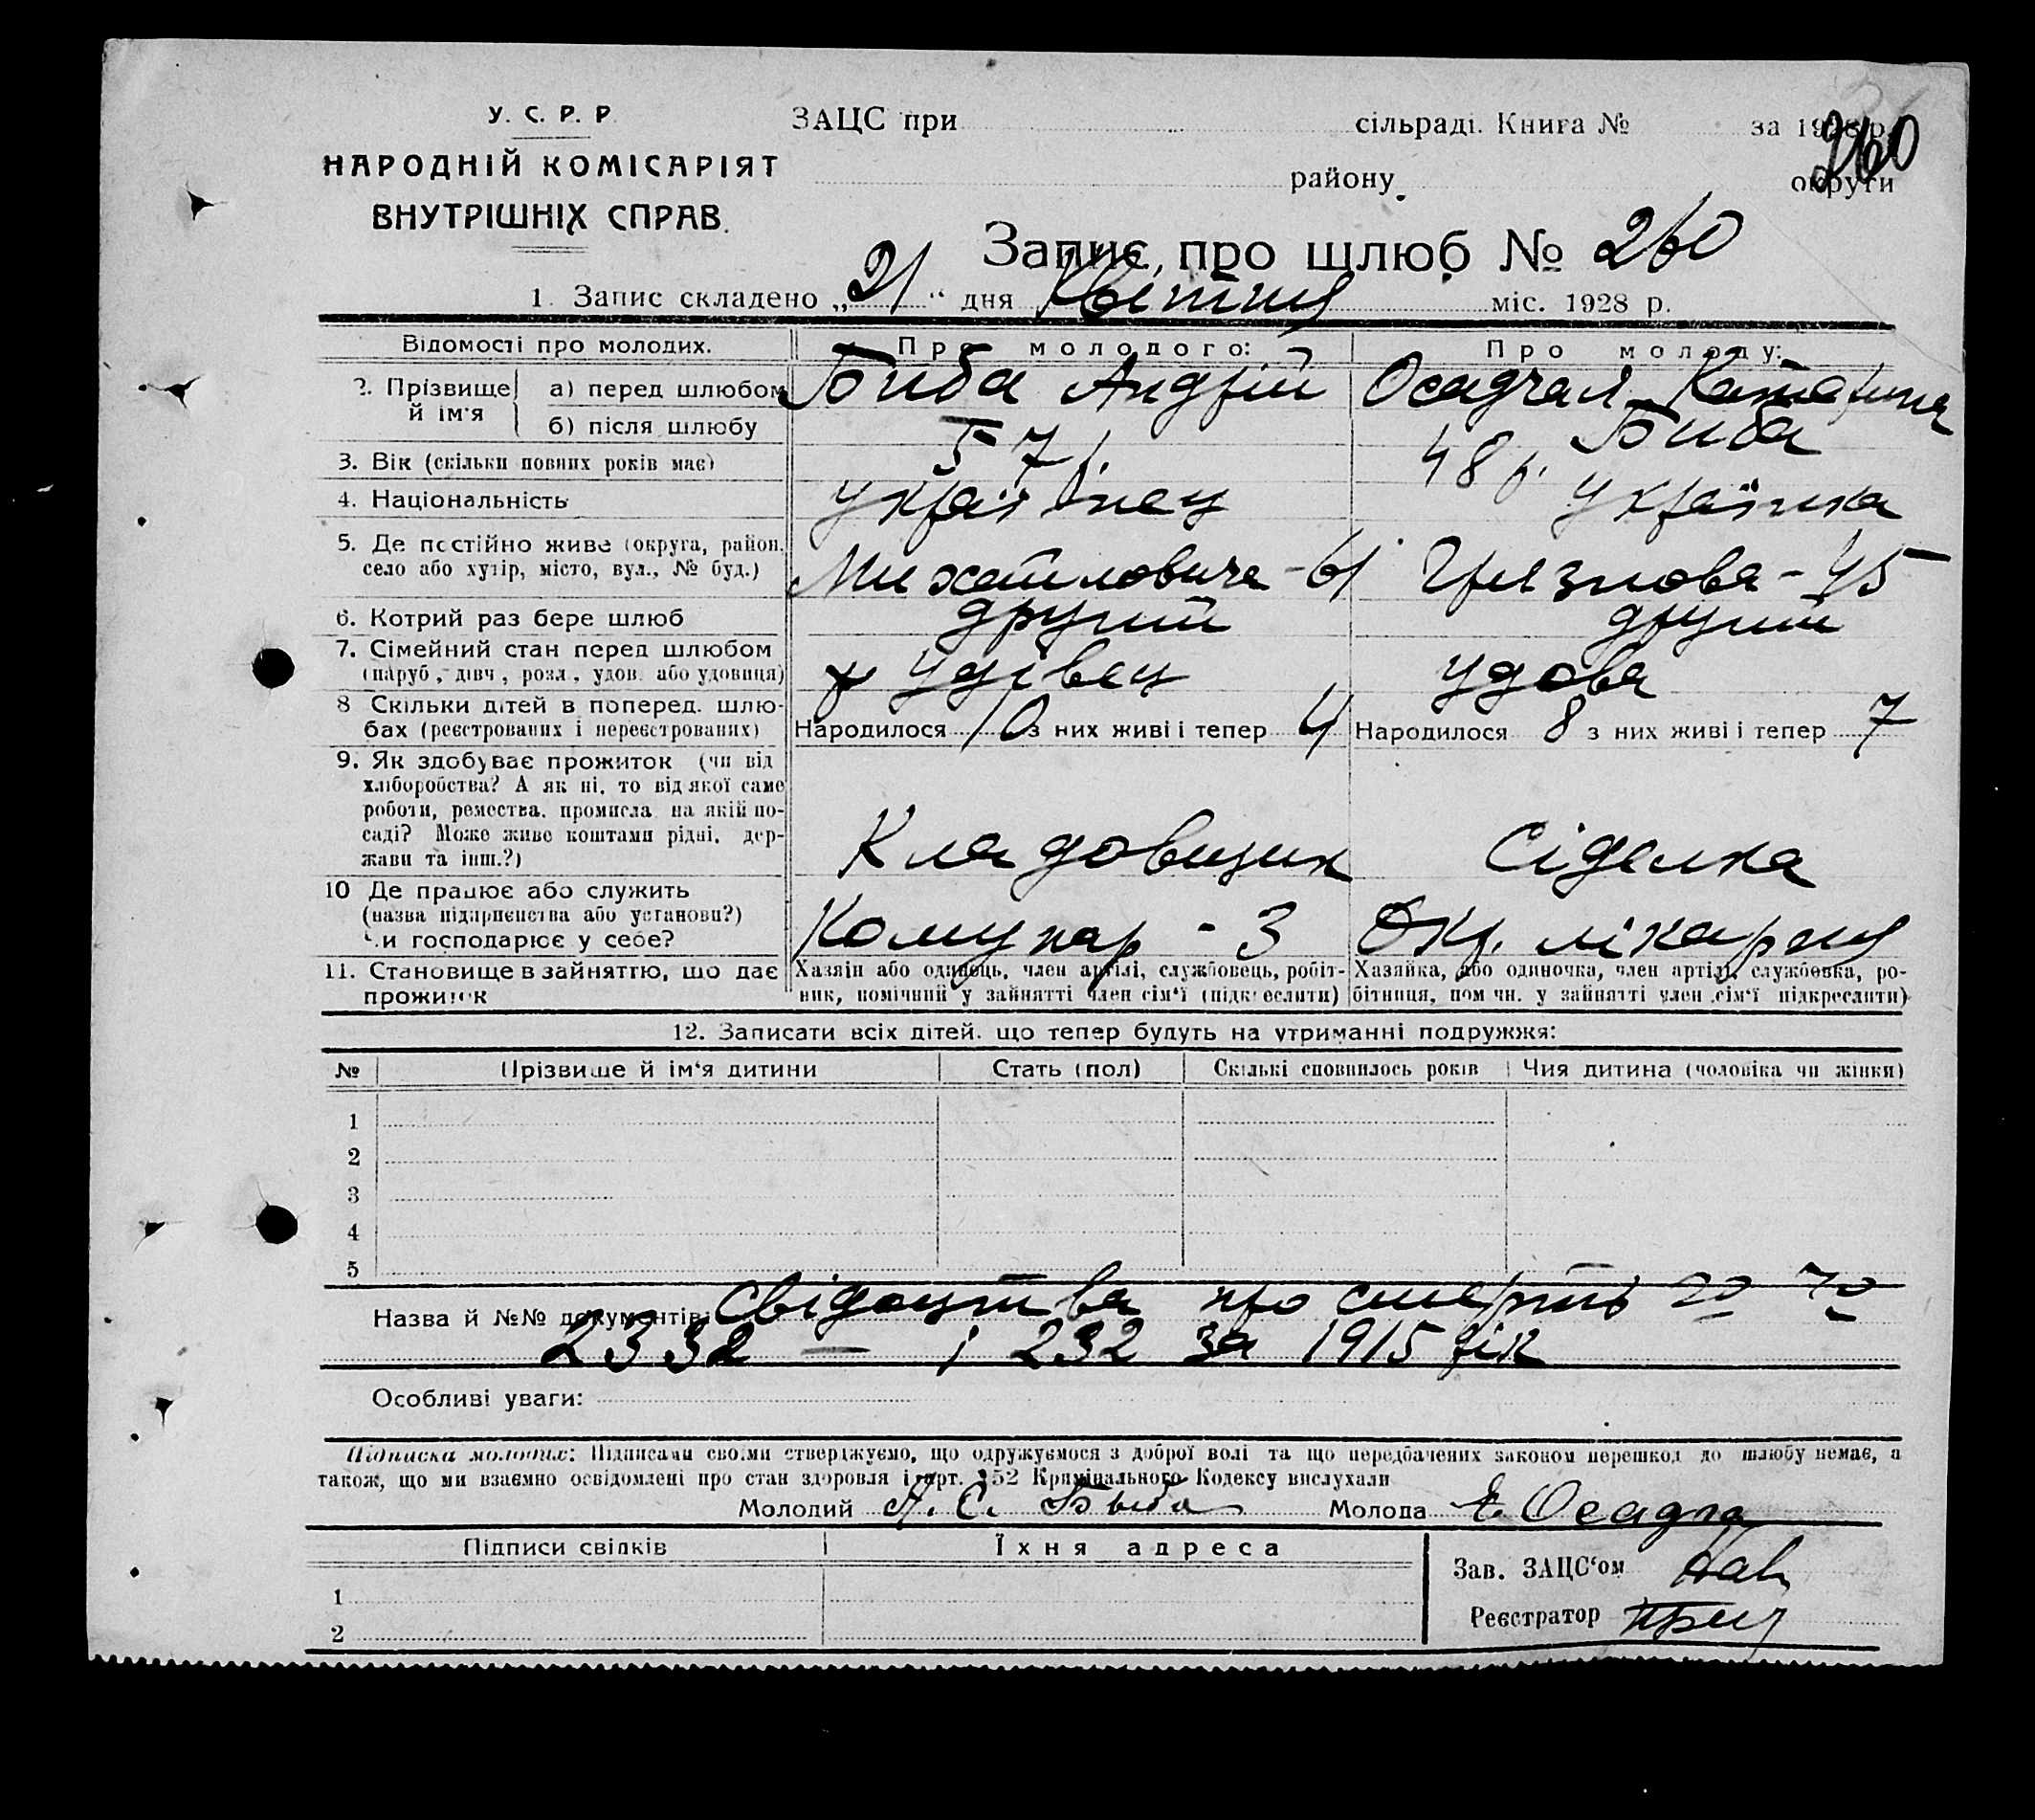 У. С. Р. Р.
НАРОДНІЙ КОМІСАРІЯТ
ВНУТРІШНІХ СПРАВ.
ЗАЦС при сільраді. Книга № за 1928 р.
260
району округи
Запис про шлюб № 260
1. Запис складено „21“ дня Квітня міс. 1928 р.
Відомості про молодих. Про молодого: Про молоду:
2. Прізвище й ім'я а) перед шлюбом Биба Андрій Осадчая Катерина
б) після шлюбу Биба
3. Вік (скільки повних років має) 57 р. 48 р.
4. Національність українець українка
5. Де постійно живе (округа, район, село або хутір, місто, вул., № буд.) Михайловича - 61 Грязнова - 45
6. Котрий раз бере шлюб другий другий
7. Сімейний стан перед шлюбом (паруб., дівч., розл., удов. або удовиця) удівець удова
8 Скільки дітей в поперед. шлюбах (реєстрованих і нереєстрованих) Народилося 10 з них живі і тепер 4 Народилося 8 з них живі і тепер 7
9. Як здобуває прожиток (чи від
хліборобства? А як ні, то від якої саме
роботи, ремества, промисла на якій по-
саді? Може живе коштами рідні, дер-
жави та інш.?) Кладовщик Сіделка
10 Де працює або служить
(назва підприємства або установи?)
чи господарює у себе? Комунар - 3 Окр. лікарня
11. Становище в зайняттю, що дає прожиток
Хазяїн або одинець, член артілі, службовець, робіт-
ник, помічний у зайнятті член сім'ї (підкреслити)
Хазяйка, або одиночка, член артілі, службовка, ро-
бітниця, помічн. у зайнятті член сім'ї підкреслити)
12. Записати всіх дітей. що тепер будуть на утриманні подружжя:
№ Прізвище й ім'я дитини Стать (пол) Скількі сповнилось років Чия дитина (чоловіка чи жінки)
1
2
3
4
5
Назва й №№ документів: Свідоцтва про смерть
2332 — і 232 за 1915 рік
Особливі уваги:
Підписка молодих: Підписами своїми стверджуємо, що одружуємося з доброї волі та що передбачених законом перешкод до шлюбу немає, а
також, що ми взаємно освідомлені про стан здоровля і арт. 152 Кримінального Кодексу вислухали
Молодий А. С. Быба Молода Е. Осадча
Підписи свідків Їхня адреса
1
2
Зав. ЗАЦС'ом
Реєстратор